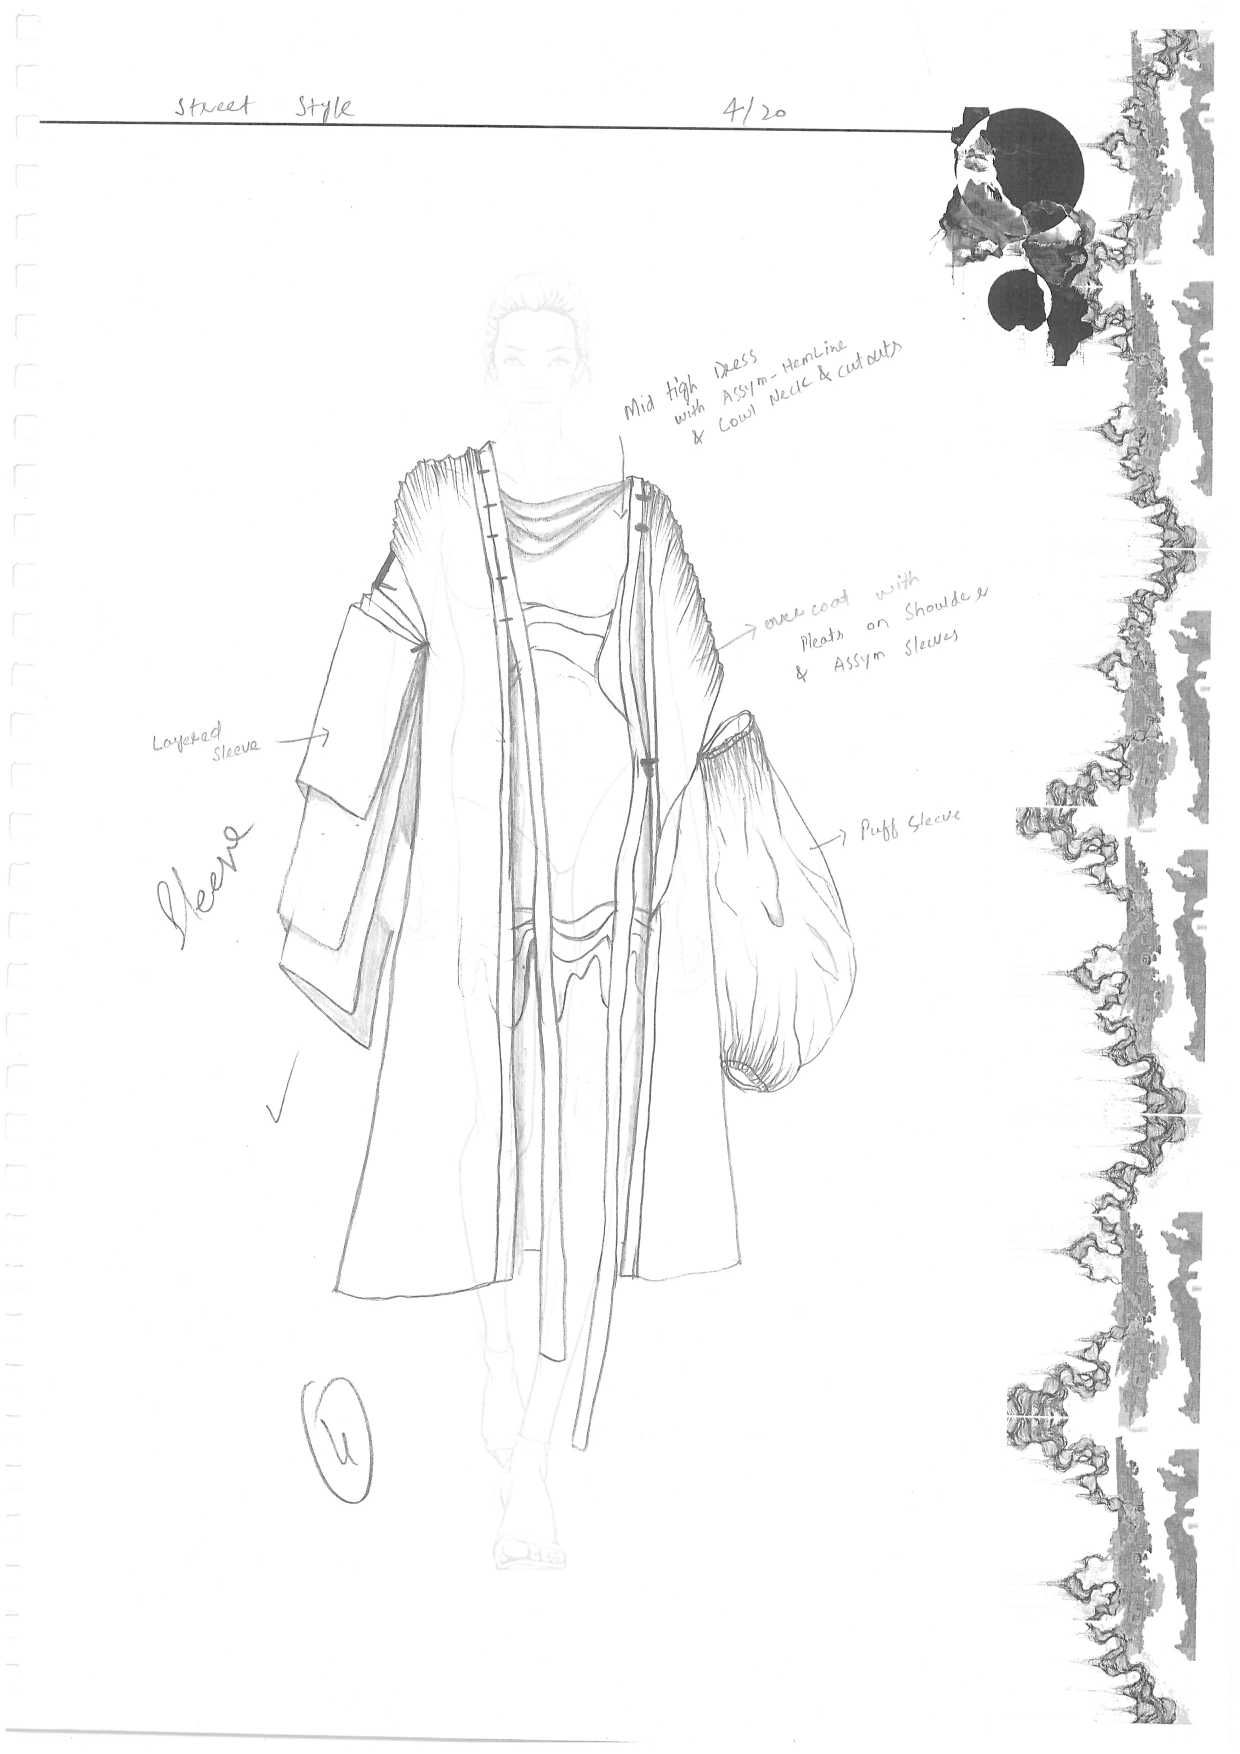 Street Style
4/20
Mid tigh Dress
with Assym-HemLine
& Cowl Neck & cutouts
overcoat with
Pleats on Shoulder
& Assym Sleeves
Layered
Sleeve
Sleeve
Puff Sleeve